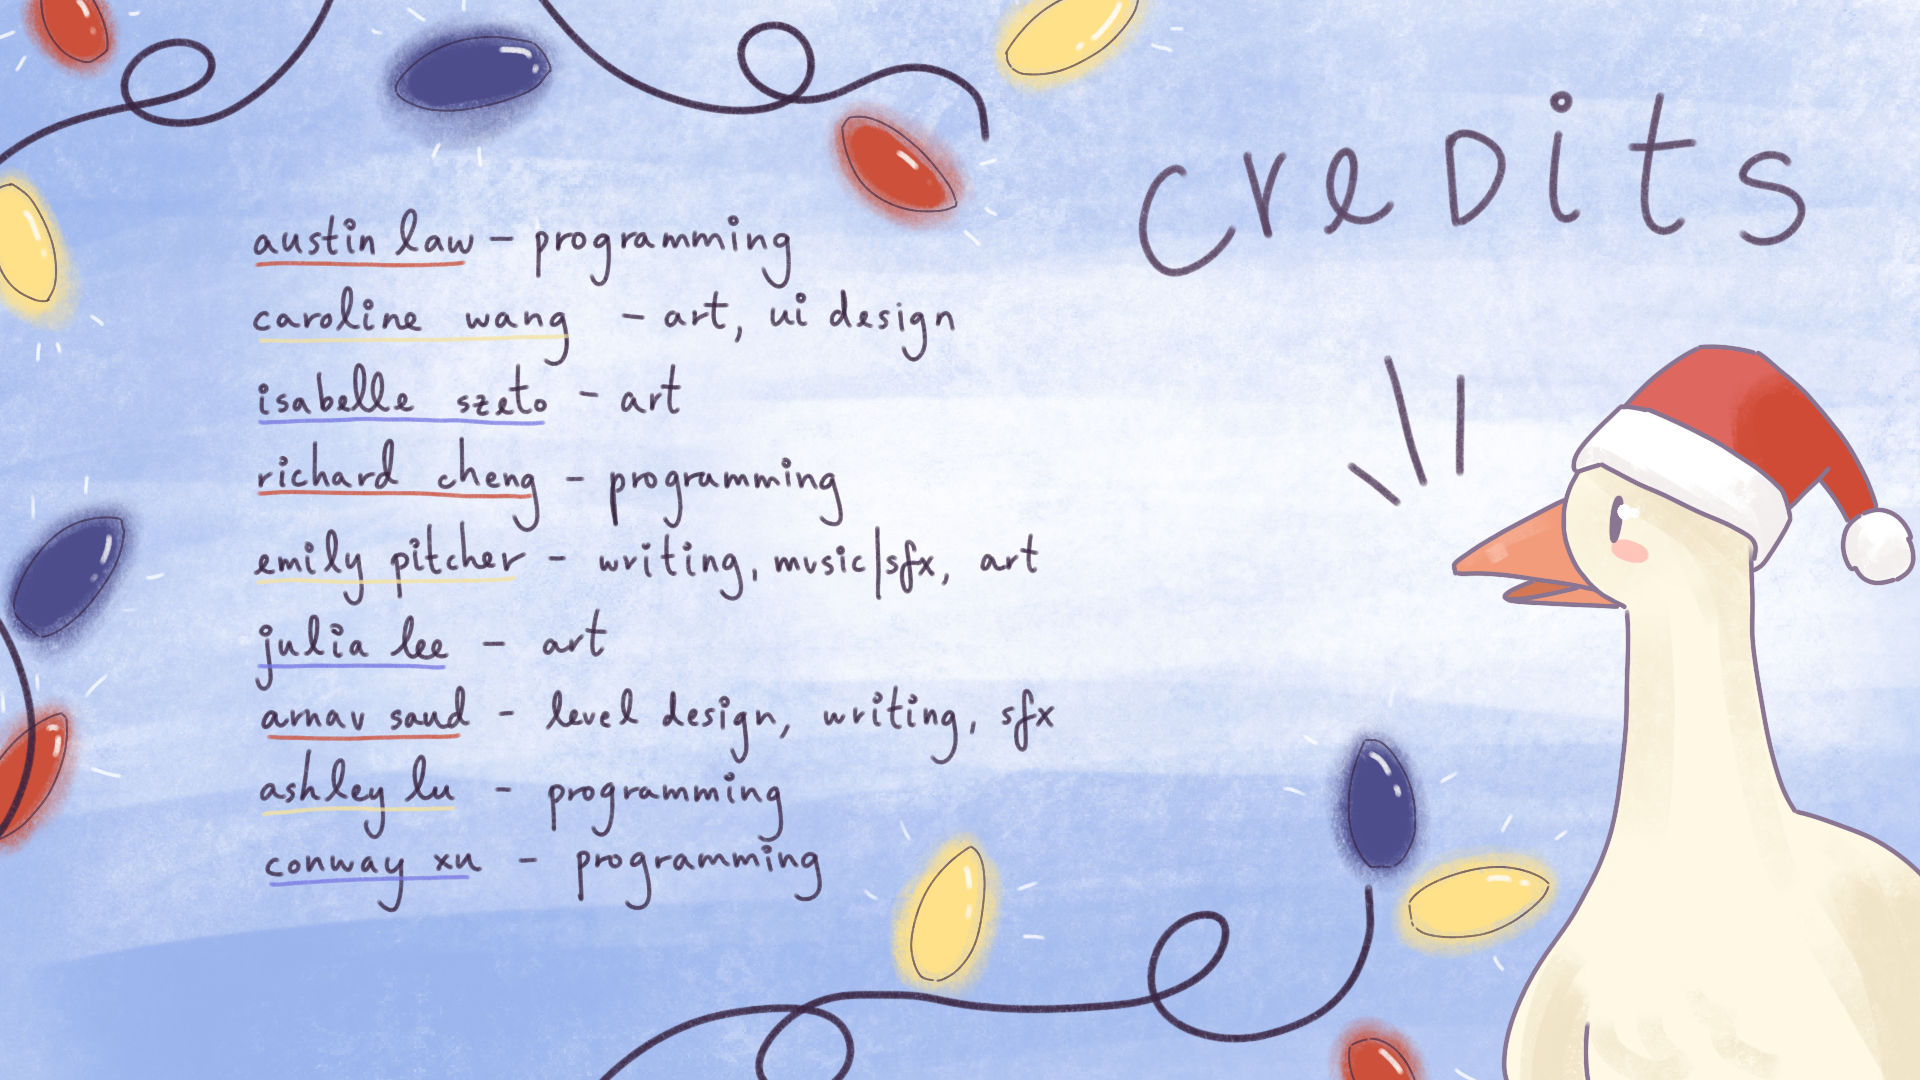 credits
austin law - programming
caroline wang - art, ui design
isabelle szeto - art
richard cheng - programming
emily pitcher - writing, music|sfx, art
julia lee - art
arnav saud - level design, writing, sfx
ashley lu - programming
conway xu - programming